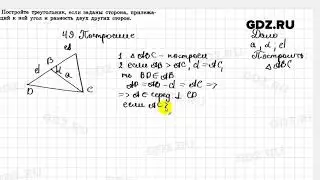 Постройте треугольник, если заданы сторона, прилежа-
щий к ней угол и разность двух других сторон.
GDZ.RU
49 Построение
Дано
a, d, α
Построить
△ABC
1 △ABC – построен
2 если AB > AC, d = AC,
то BD ∈ AB
AD = AB - d = AC =>
=> A ∈ серед ⊥ CD
если AC
B
d
α
a
A
D
C